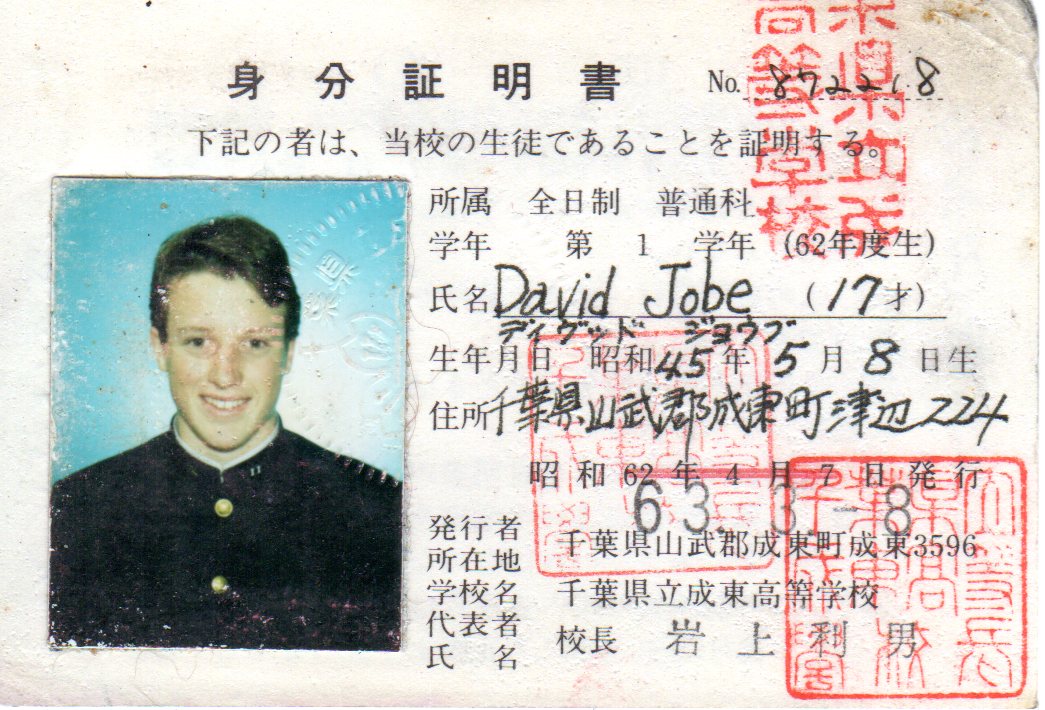 身分証明書 No. 872218
下記の者は、当校の生徒であることを証明する。
所属 全日制 普通科
学年 第 1 学年 (62年度生)
氏名 David Jobe (17才)
ディヴッド ジョウブ
生年月日 昭和45年 5月 8日生
住所 千葉県山武郡成東町津辺224
昭和 62年 4月 7日発行
63. 3. -8
発行者
所在地 千葉県山武郡成東町成東3596
学校名 千葉県立成東高等学校
代表者
氏名 校長 岩上利男